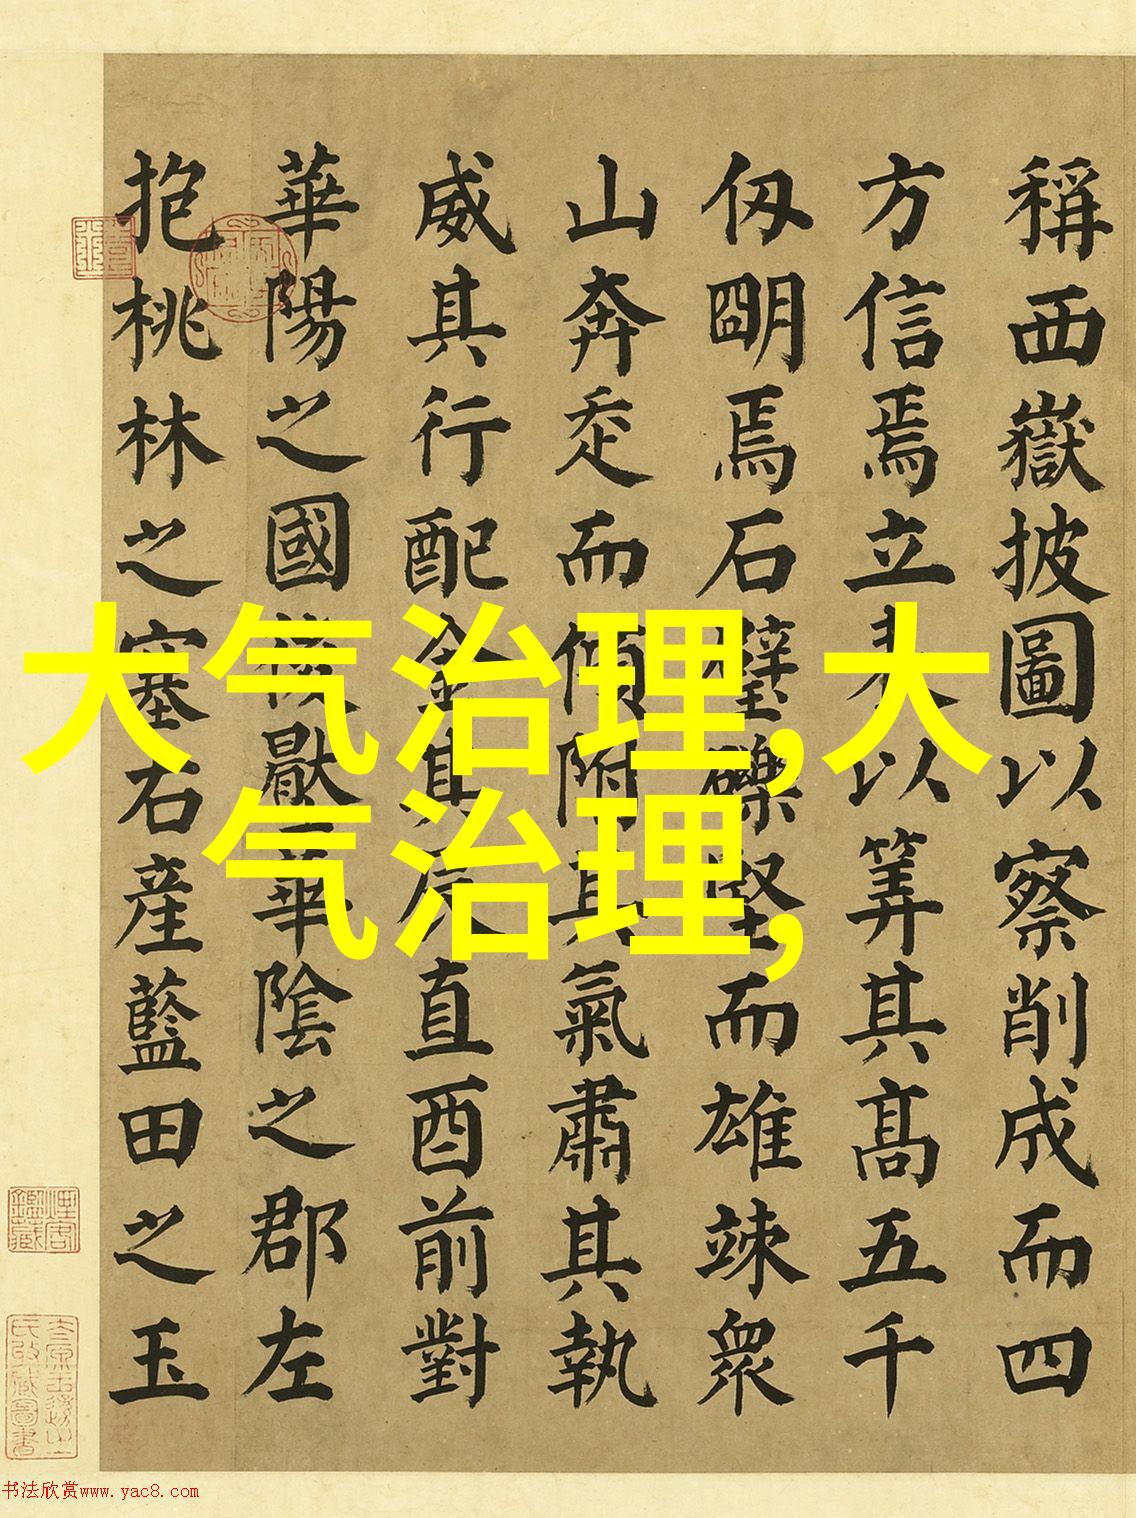 稱西嶽披圖以察削成而四
方信焉立表以筭其髙五千
仭朙焉石壁礫堅而雄竦衆
山奔走而傾附其氣肅其執
威其行配金其辰直酉前對
華陽之國後厭華陰之郡左
抱桃林之塞右産藍田之玉
大气治理,大
气治理,
书法欣赏www.yac8.com